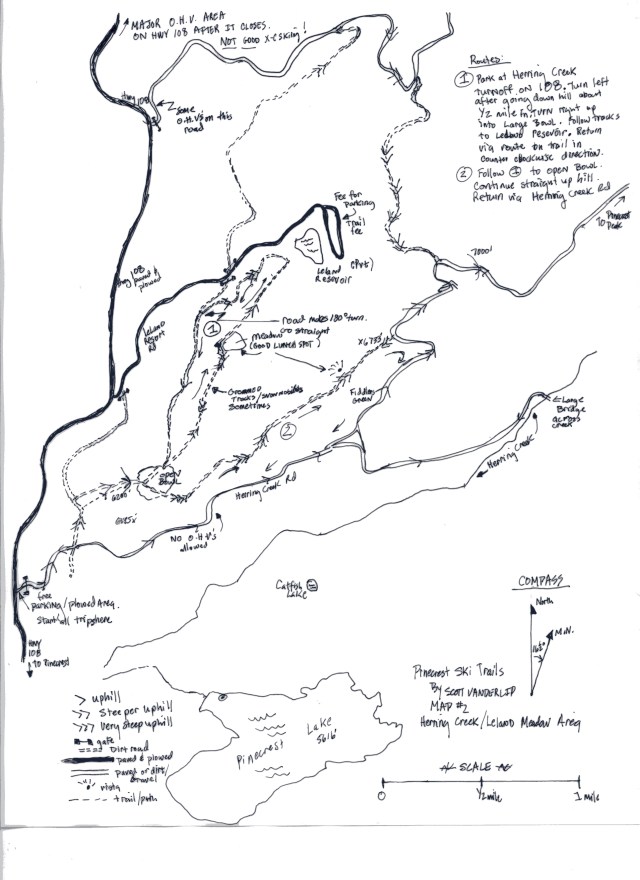 MAJOR O.H.V. AREA
ON HWY 108 AFTER IT CLOSES.
NOT GOOD X-C skiing!
Hwy 108
some
O.H.V's on this
road
Routes:
① Park at Herring Creek
turnoff on 108. Turn left
after going down hill about
1/2 mile
turn right up
into Large Bowl. Follow tracks
to Leland Reservoir. Return
via route on trail in
counter clockwise direction.
② Follow ① to open Bowl.
Continue straight up hill.
Return via Herring Creek Rd
To Pinecrest
Peak
7000'
Fee for
Parking
Trail
fee
Leland
Reservoir
(Pvt)
Hwy 108
paved &
plowed
Leland
Resort
Rd
①
road makes 180° turn.
Go straight
Meadow
(GOOD LUNCH SPOT)
X6733'
Groomed
Tracks/snowmobiles
Sometimes
Fiddlers
Green
②
Large
Bridge
across
creek
Herring Creek
OPEN
BOWL
6200'
Herring Creek Rd
NO O.H.V's
allowed
free
parking/plowed Area.
Start all trips here
HWY
108
To Pinecrest
Catfish
Lake
COMPASS
North
M.N.
Pinecrest Ski Trails
By SCOTT VANDERLIP
MAP #2
Herring Creek/Leland Meadow Area
uphill
Steeper uphill
Very steep uphill
gate
Dirt road
paved & plowed
paved or dirt/
gravel
vista
trail/path
Pinecrest
Lake
5616'
SCALE
0
1/2 mile
1 mile